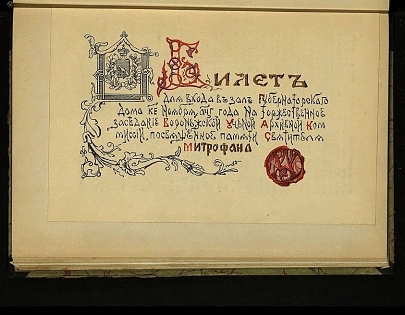 Билетъ
для входа въ залъ Губернаторскаго
дома 
Ноября
года на торжественное
засѣданіе Воронежской Ученой Архивной Ком
миссіи, посвященное памяти Святителя
Митрофана